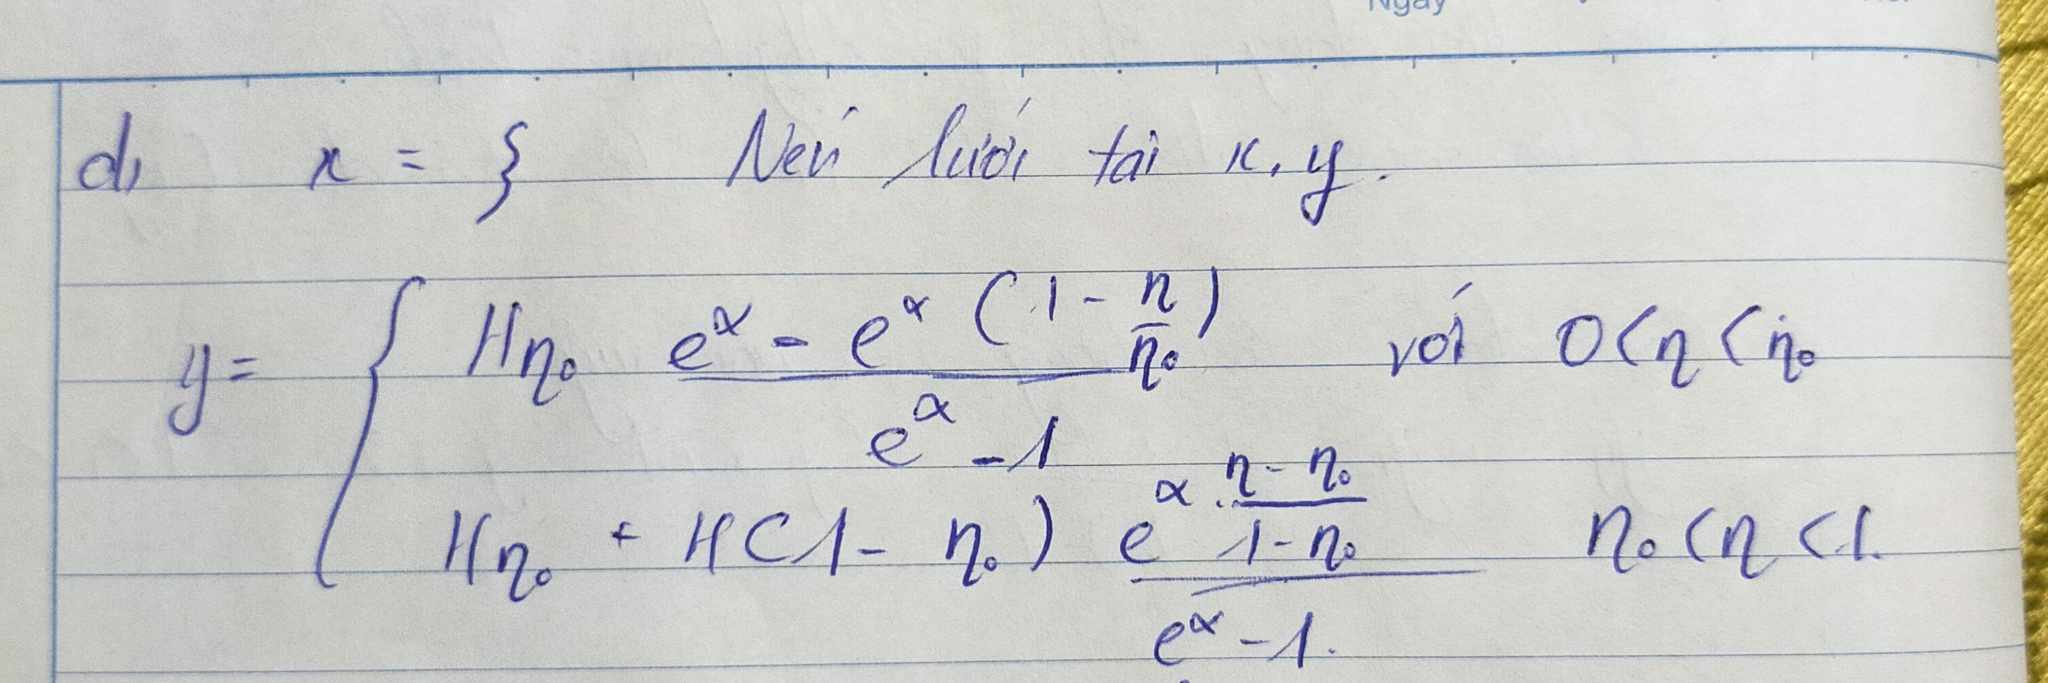 Ngày
d, x = } Nén lưới tại x, y.
y = { Hη₀ (e^α - e^α (1 - η/η₀)) / (e^α - 1) với 0 < η < η₀
Hη₀ + H(1 - η₀) e^(α · (η - η₀)/(1 - η₀)) / (e^α - 1) η₀ < η < 1.